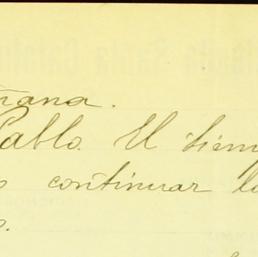 ñana.
Pablo. El tiem
continuar la